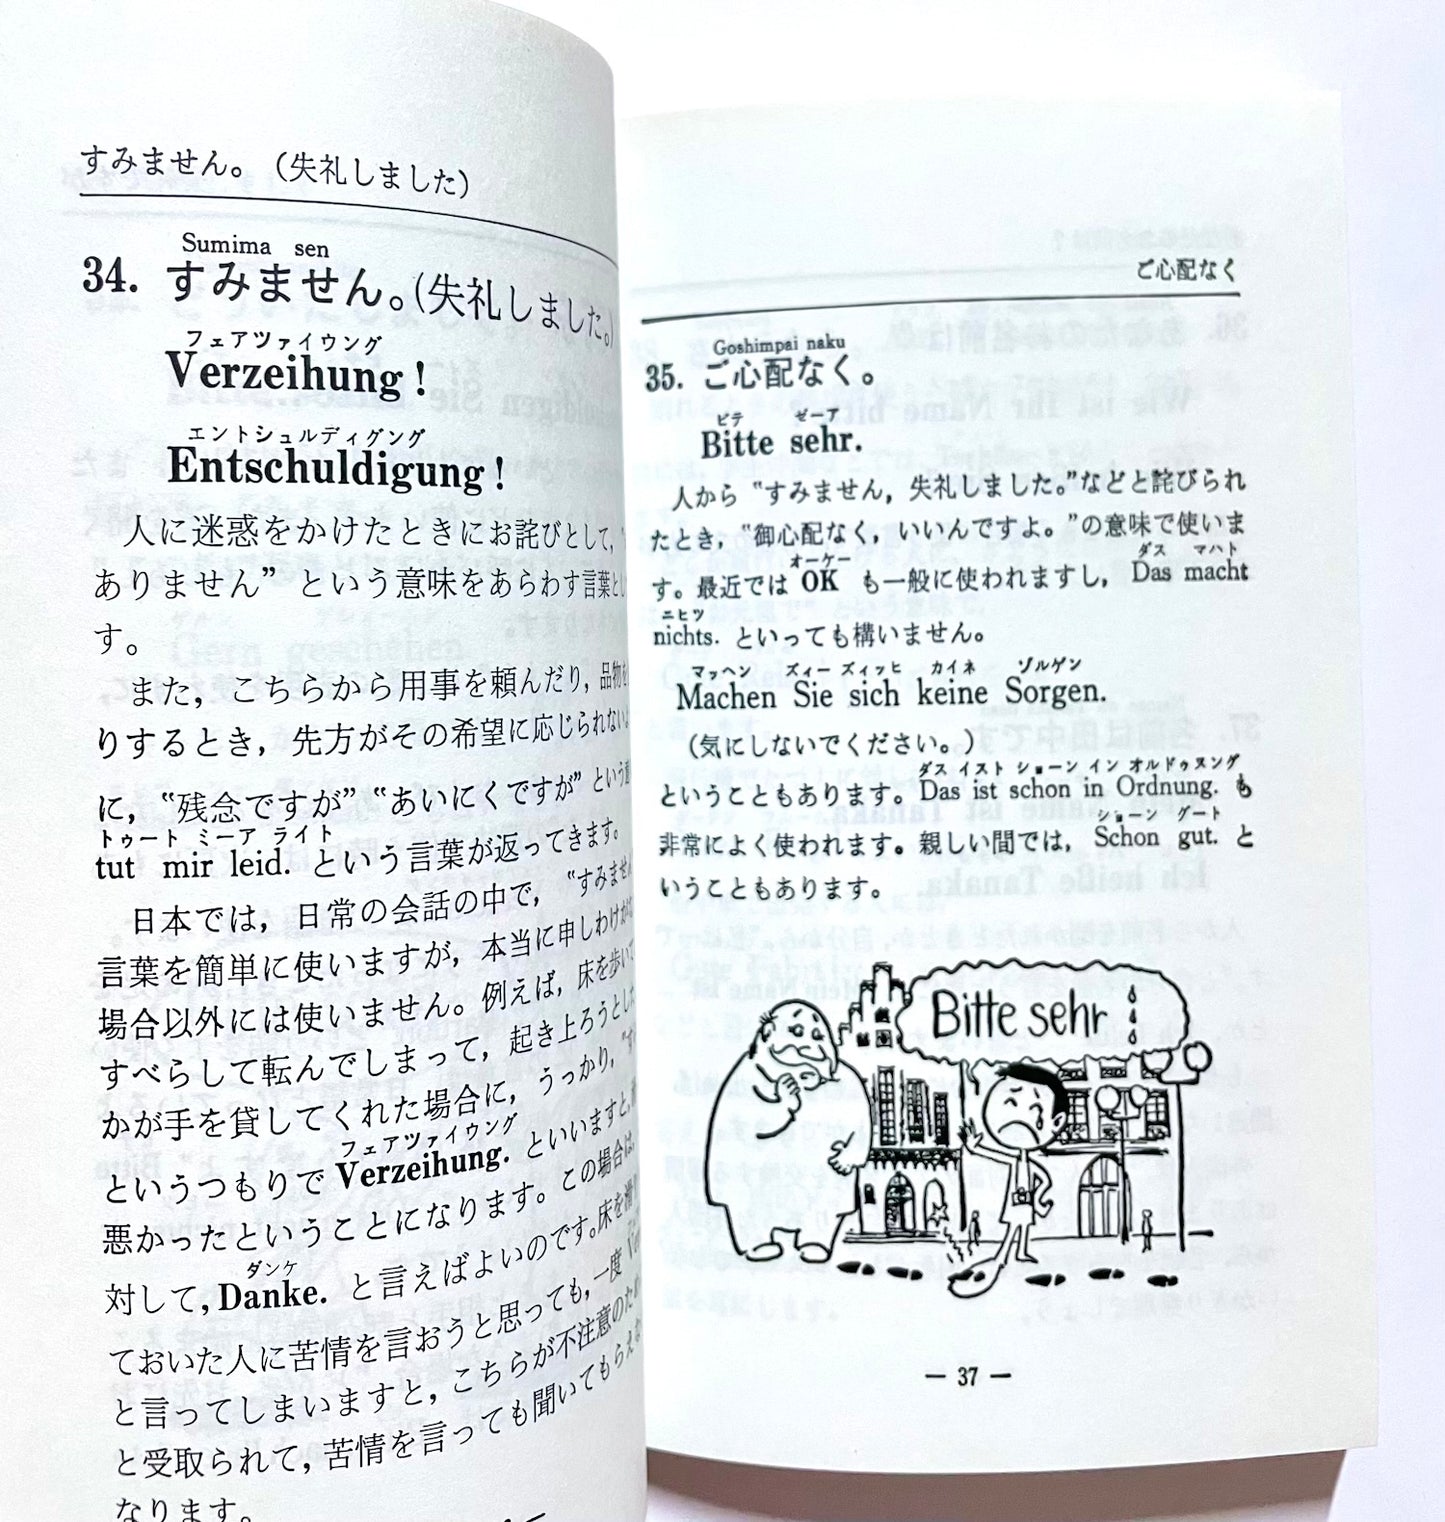 すみません。（失礼しました）
Sumima sen
34. すみません。（失礼しました。）
フェアツァイウング
Verzeihung !
エントシュルディグング
Entschuldigung !
人に迷惑をかけたときにお詫びとして，
ありません” という意味をあらわす言葉と
す。
また，こちらから用事を頼んだり，品物を
りするとき，先方がその希望に応じられない
に，“残念ですが”“あいにくですが” という
トゥート ミーア ライト
tut mir leid. という言葉が返ってきます。
日本では，日常の会話の中で，“すみません
言葉を簡単に使いますが，本当に申しわけが
場合以外には使いません。例えば，床を歩いて
すべらして転んでしまって，起き上ろうとした
かが手を貸してくれた場合に，うっかり，“す
フェアツァイウング
というつもりで Verzeihung. といいますと，
悪かったということになります。この場合は，
ダンケ
対して，Danke. と言えばよいのです。床を滑
ておいた人に苦情を言おうと思っても，一度
と言ってしまいますと，こちらが不注意のため
と受取られて，苦情を言っても聞いてもらえな
なります。
ご心配なく
Goshimpai naku
35. ご心配なく。
ビテ ゼーア
Bitte sehr.
人から “すみません，失礼しました。”などと詫びられ
たとき，“御心配なく，いいんですよ。”の意味で使いま
オーケー ダス マハト
す。最近では OK も一般に使われますし，Das macht
ニヒツ
nichts. といっても構いません。
マッヘン ズィー ズィッヒ カイネ ゾルゲン
Machen Sie sich keine Sorgen.
（気にしないでください。）
ダス イスト ショーン イン オルドゥヌング
ということもあります。Das ist schon in Ordnung. も
ショーン グート
非常によく使われます。親しい間では，Schon gut. と
いうこともあります。
Bitte sehr
— 37 —